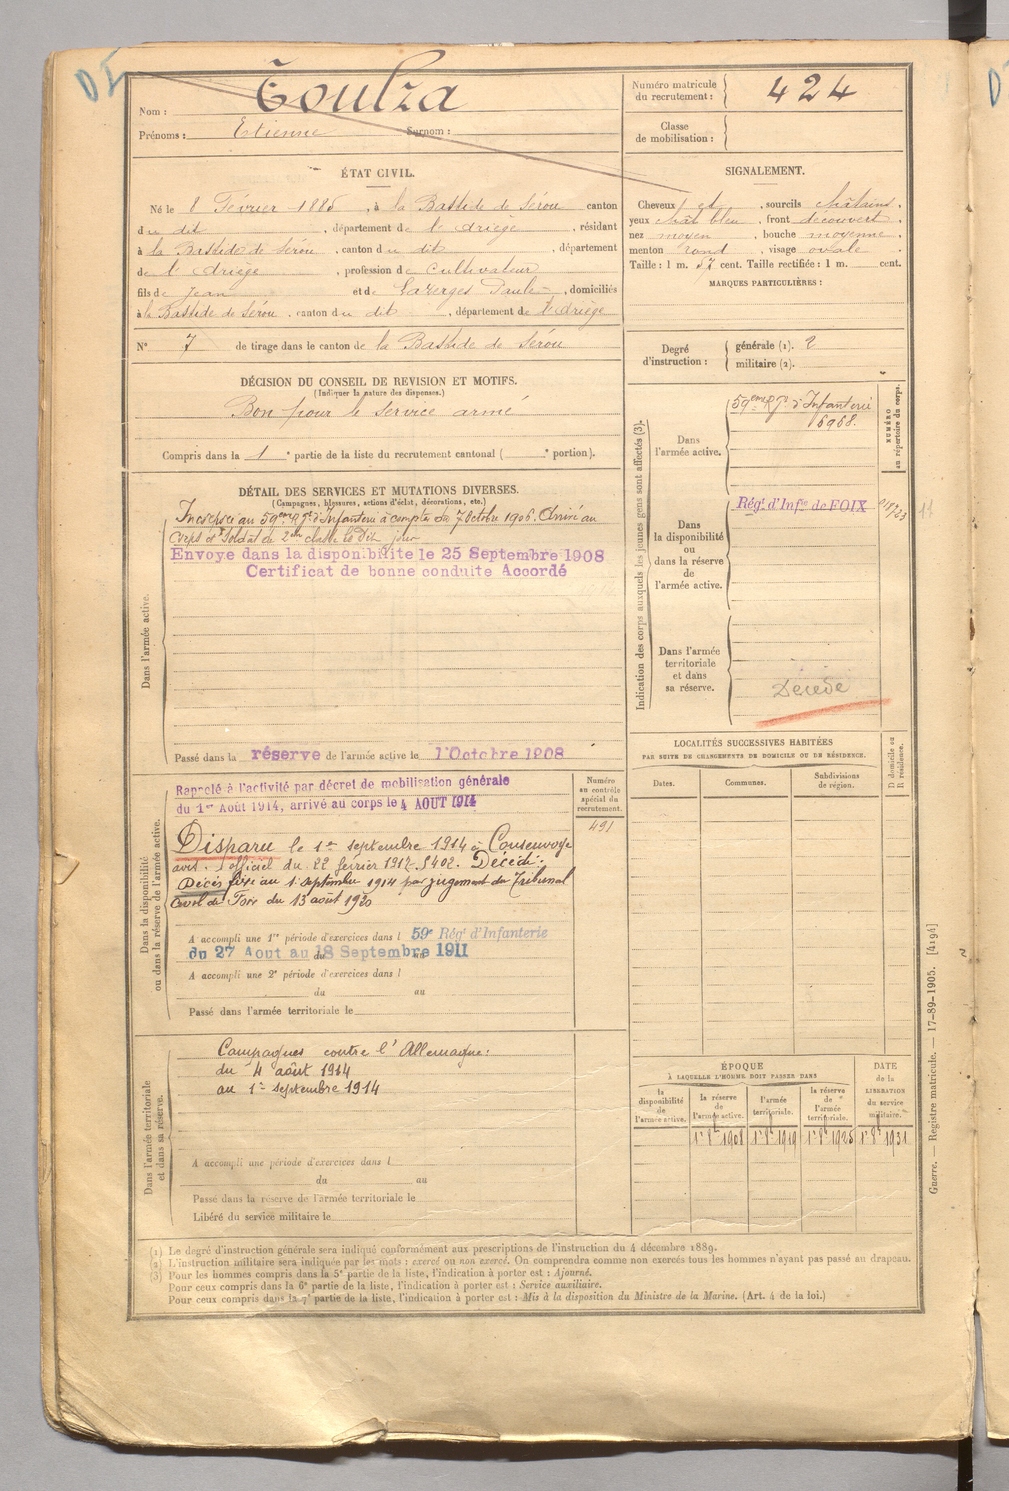 Nom : Toulza
Prénoms : Etienne Surnom :
Numéro matricule du recrutement : 424
Classe de mobilisation :
ÉTAT CIVIL.
Né le 8 Février 1885, à la Bastide de Sérou canton
du dit, département de l'Ariège, résidant
à la Bastide de Sérou, canton du dit, département
de l'Ariège, profession de Cultivateur
fils de Jean et de Lazerges Paule, domiciliés
à la Bastide de Sérou, canton du dit, département de l'Ariège
N° 7 de tirage dans le canton de la Bastide de Sérou
SIGNALEMENT.
Cheveux et, sourcils châtains,
yeux chât bleu, front découvert,
nez moyen, bouche moyenne,
menton rond, visage ovale.
Taille : 1 m. 57 cent. Taille rectifiée : 1 m. cent.
MARQUES PARTICULIÈRES :
Degré d'instruction : générale (1). 2
militaire (2).
DÉCISION DU CONSEIL DE REVISION ET MOTIFS.
(Indiquer la nature des dispenses.)
Bon pour le service armé
Compris dans la 1e partie de la liste du recrutement cantonal ( e portion).
DÉTAIL DES SERVICES ET MUTATIONS DIVERSES.
(Campagnes, blessures, actions d'éclat, décorations, etc.)
Dans l'armée active.
Incorporé au 59eme Rgt d'Infanterie à compter du 7 Octobre 1906. Arrivé au
corps et soldat de 2me classe le dit jour
Envoye dans la disponibilite le 25 Septembre 1908
Certificat de bonne conduite Accordé
Passé dans la réserve de l'armée active le 1 Octobre 1908
Indication des corps auxquels les jeunes gens sont affectés (3).
NUMÉRO au répertoire du corps.
Dans l'armée active.
59eme Rgt d'Infanterie
6968.
Dans la disponibilité ou dans la réserve de l'armée active.
Rég. d'Infie de FOIX
Dans l'armée territoriale et dans sa réserve.
Décédé
LOCALITÉS SUCCESSIVES HABITÉES
PAR SUITE DE CHANGEMENTS DE DOMICILE OU DE RÉSIDENCE.
Dates.
Communes.
Subdivisions de région.
D domicile ou R résidence.
Dans la disponibilité ou dans la réserve de l'armée active.
Rappelé à l'activité par décret de mobilisation générale
du 1er Août 1914, arrivé au corps le 4 AOUT 1914
Numéro au contrôle spécial du recrutement.
491
Disparu le 1er septembre 1914 à Consenvoye
avis officiel du 22 février 1917. Décédé.
Décès fixé au 1er septembre 1914 par jugement du Tribunal
civil de Foix du 13 août 1920
A accompli une 1re période d'exercices dans l 59e Rég. d'Infanterie
du 27 Aout au 18 Septembre 1911
A accompli une 2e période d'exercices dans l
du au
Passé dans l'armée territoriale le
Dans l'armée territoriale et dans sa réserve.
Campagnes contre l'Allemagne :
du 4 août 1914
au 1er septembre 1914
A accompli une période d'exercices dans l
du au
Passé dans la réserve de l'armée territoriale le
Libéré du service militaire le
ÉPOQUE
À LAQUELLE L'HOMME DOIT PASSER DANS
la disponibilité de l'armée active.
la réserve de l'armée active.
l'armée territoriale.
la réserve de l'armée territoriale.
DATE de la LIBÉRATION du service militaire.
1er 8bre 1908 1er 8bre 1919 1er 8bre 1925 1er 8bre 1931
(1) Le degré d'instruction générale sera indiqué conformément aux prescriptions de l'instruction du 4 décembre 1889.
(2) L'instruction militaire sera indiquée par les mots : exercé ou non exercé. On comprendra comme non exercés tous les hommes n'ayant pas passé au drapeau.
(3) Pour les hommes compris dans la 5e partie de la liste, l'indication à porter est : Ajourné.
Pour ceux compris dans la 6e partie de la liste, l'indication à porter est : Service auxiliaire.
Pour ceux compris dans la 7e partie de la liste, l'indication à porter est : Mis à la disposition du Ministre de la Marine. (Art. 4 de la loi.)
Guerre. — Registre matricule. — 17-89-1905. [4194]